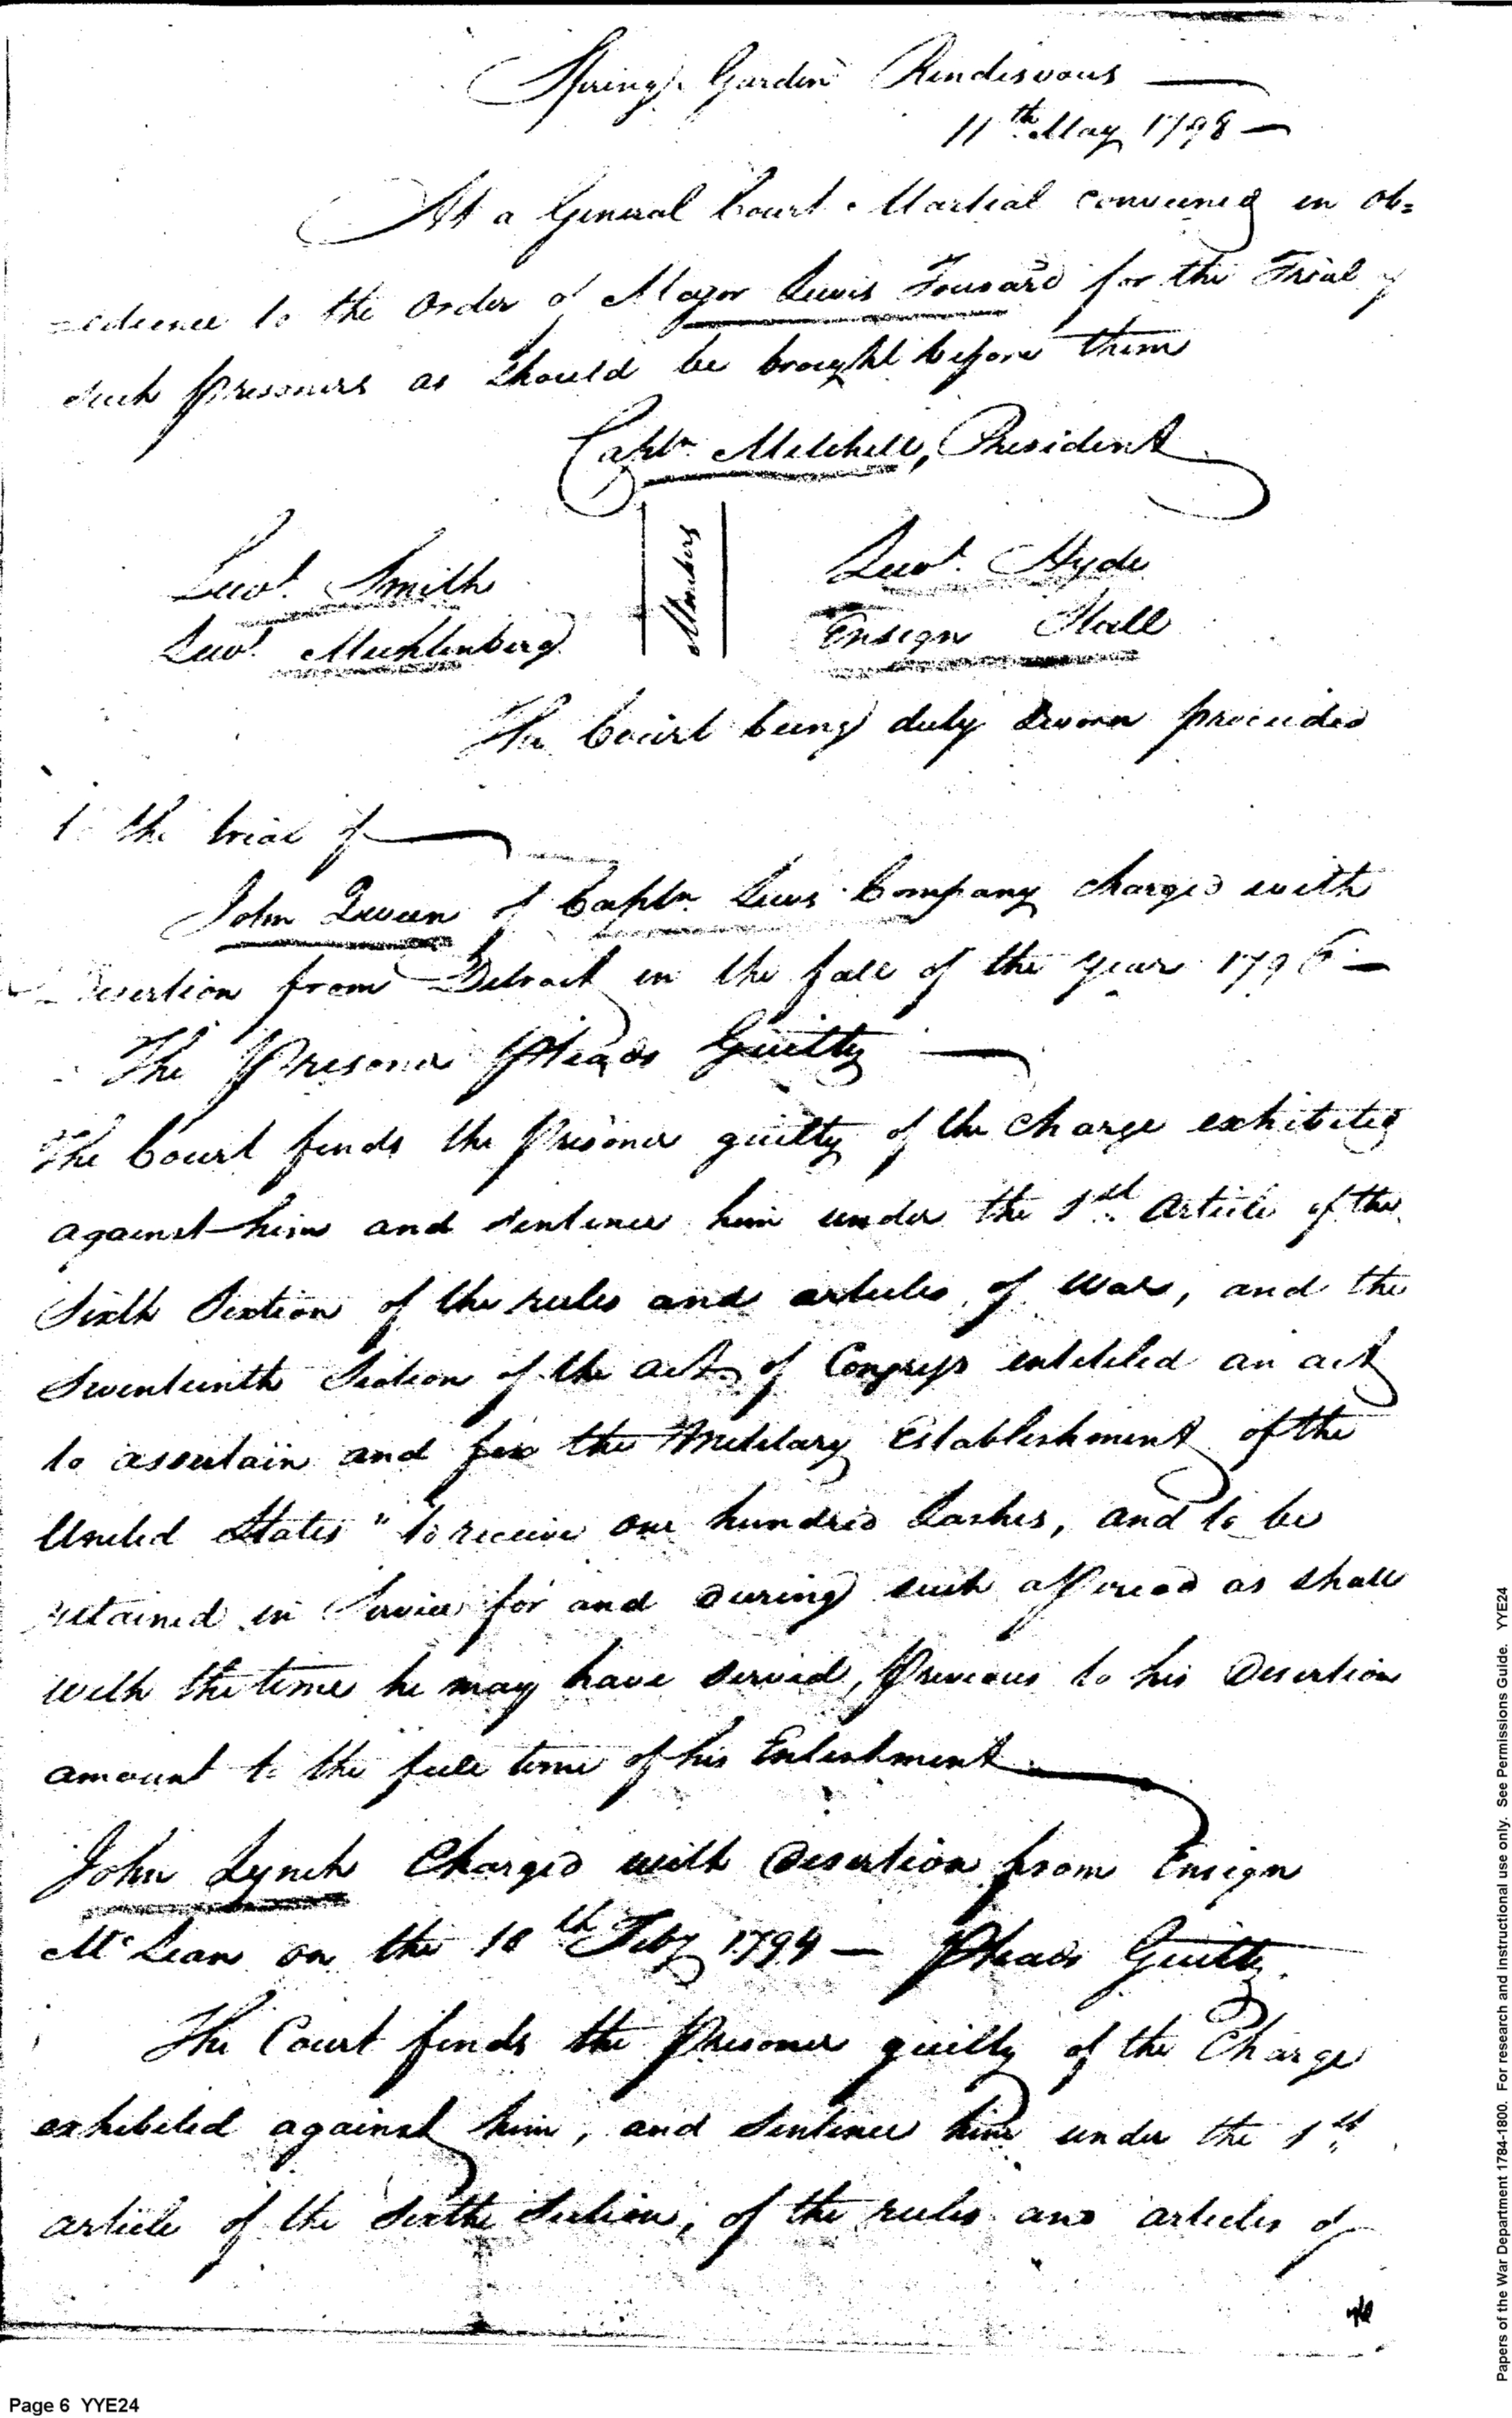 Spring Garden Rendisvous —
11th May 1798 —
At a General Court Martial convened in ob=
=edience to the Order of Major Lewis Tousard for the Trial of
such prisoners as should be brought before them
Captn. Mitchell, President
Members
Lieut. Smith
Lieut. Muhlenberg
Lieut. Hyde
Ensign Hall
The Court being duly Sworn proceeded
to the trial of —
John Queen of Captn. Lewis Company charged with
Desertion from Detroit in the fall of the year 1796 —
The Prisoner Pleads Guilty —
The Court finds the Prisoner guilty of the Charge exhibited
against him and sentence him under the 1st Article of the
Sixth Section of the rules and articles of War, and the
Seventeenth Section of the act of Congress entitled an act
to ascertain and fix the Military Establishment of the
United States " to receive one hundred Lashes, and to be
retained in Service for and during such a Period as shall
with the time he may have served, Previous to his Desertion
amount to the full time of his Enlistment
John Lynch Charged with Desertion from Ensign
McLean on the 10th Feby 1794 — Pleads Guilty.
The Court finds the Prisoner guilty of the Charge
exhibited against him, and Sentence him under the 1st
article of the Sixth Section, of the rules and articles of
Page 6 YYE24
Papers of the War Department 1784-1800. For research and instructional use only. See Permissions Guide. YYE24